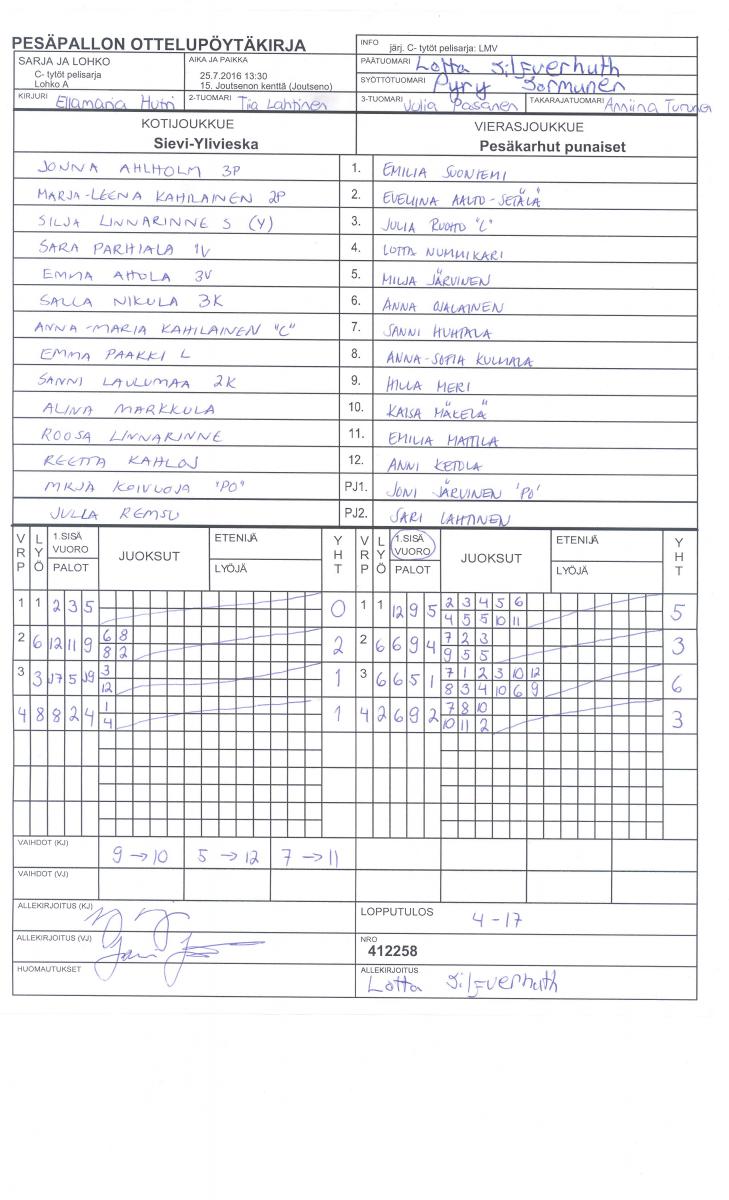 PESÄPALLON OTTELUPÖYTÄKIRJA
INFO järj. C- tytöt pelisarja: LMV
SARJA JA LOHKO
C- tytöt pelisarja
Lohko A
AIKA JA PAIKKA
25.7.2016 13:30
15. Joutsenon kenttä (Joutseno)
PÄÄTUOMARI Lotta Silfverhuth
SYÖTTÖTUOMARI Pyry Sormunen
KIRJURI Ellamaria Hutri 2-TUOMARI Tiia Lahtinen 3-TUOMARI Julia Pasanen TAKARAJATUOMARI Anniina Turunen
KOTIJOUKKUE VIERASJOUKKUE
Sievi-Ylivieska Pesäkarhut punaiset
JONNA AHLHOLM 3P 1. EMILIA SUONIEMI
MARJA-LEENA KAHILAINEN 2P 2. EVELIINA AALTO-SETÄLÄ
SILJA LINNARINNE S (Y) 3. JULIA RUOHO "C"
SARA PARHIALA 1V 4. LOTTA NUMMIKARI
EMMA AHOLA 3V 5. MILJA JÄRVINEN
SALLA NIKULA 3K 6. ANNA OJALAINEN
ANNA-MARIA KAHILAINEN "C" 7. SANNI HUHTALA
EMMA PAAKKI L 8. ANNA-SOFIA KULMALA
SANNI LAULUMAA 2K 9. HILLA MERI
ALINA MARKKULA 10. KAISA MÄKELÄ
ROOSA LINNARINNE 11. EMILIA MATTILA
REETTA KAHLOS 12. ANNI KETOLA
MRJA KOIVUOJA "PO" PJ1. JONI JÄRVINEN 'PO'
JULLA REMSU PJ2. SARI LAHTINEN
VRP LYÖ 1.SISÄ VUORO PALOT JUOKSUT ETENIJÄ LYÖJÄ YHT VRP LYÖ 1.SISÄ VUORO PALOT JUOKSUT ETENIJÄ LYÖJÄ YHT
1 1 2 3 5 0 1 1 12 9 5 2 3 4 5 6 5
4 5 5 10 11
2 6 12 11 9 6 8 2 2 6 6 9 4 7 2 3 3
8 2 9 5 5
3 3 17 5 19 3 1 3 6 6 5 1 7 1 2 3 10 12 6
12 8 3 4 10 6 9
4 8 8 2 4 1 1 4 2 6 9 2 7 8 10 3
4 10 11 2
VAIHDOT (KJ) 9 → 10 5 → 12 7 → 11
VAIHDOT (VJ)
ALLEKIRJOITUS (KJ)
LOPPUTULOS 4 - 17
ALLEKIRJOITUS (VJ)
NRO
412258
HUOMAUTUKSET
ALLEKIRJOITUS
Lotta Silfverhuth